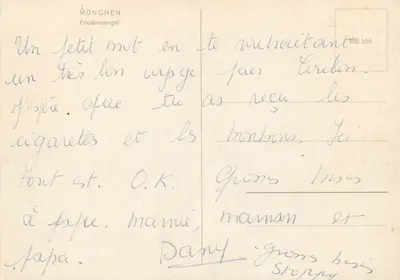 MÜNCHEN
Friedensengel
Un petit mot en te souhaitant
un très bon voyage pour
J'espère que tu as reçu les
cigarettes et les bonbons. Ici
tout est. O.K. Grosses bises
à pape, mamie, maman et
papa. Dany. grosses bises